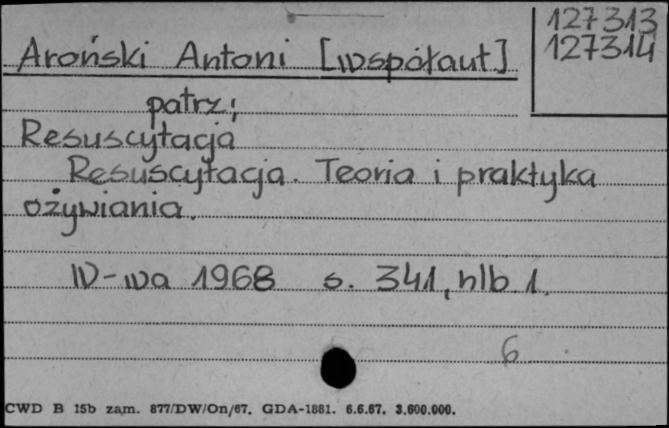 127313
127314
Aroński Antoni [współaut]
patrz:
Resuscytacja
Resuscytacja. Teoria i praktyka
ożywiania.
W-wa 1968 s. 341, nlb 1.
6
CWD B 15b zam. 877/DW/On/67. GDA-1881. 6.6.67. 3.600.000.